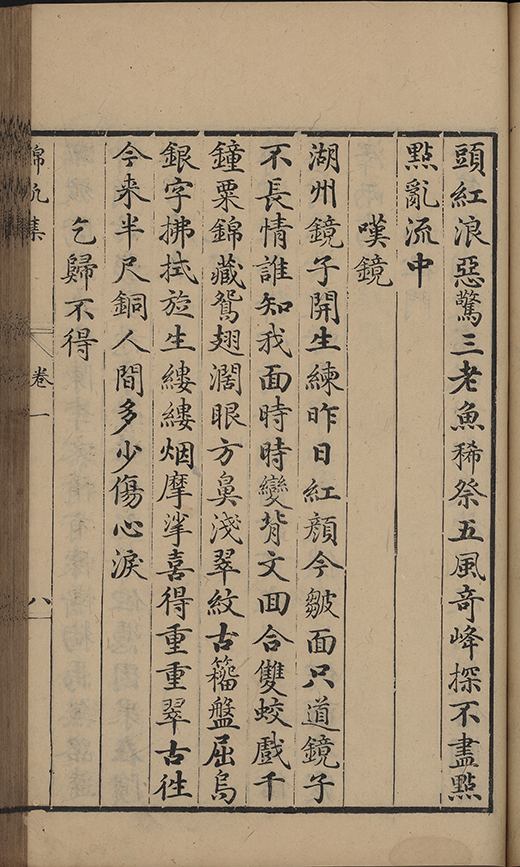 頭紅浪惡驚三老魚稀祭五風奇峰探不盡點
點亂流中
嘆鏡
湖州鏡子開生練昨日紅顏今皺面只道鏡子
不長情誰知我面時時變背文囬合雙蛟戲千
鐘粟錦藏鴛翅濶眼方鼻淺翠紋古籕盤屈烏
銀字拂拭旋生縷縷烟摩挲喜得重重翠古徃
今来半尺銅人間多少傷心淚
乞歸不得
錦帆集 卷一 八